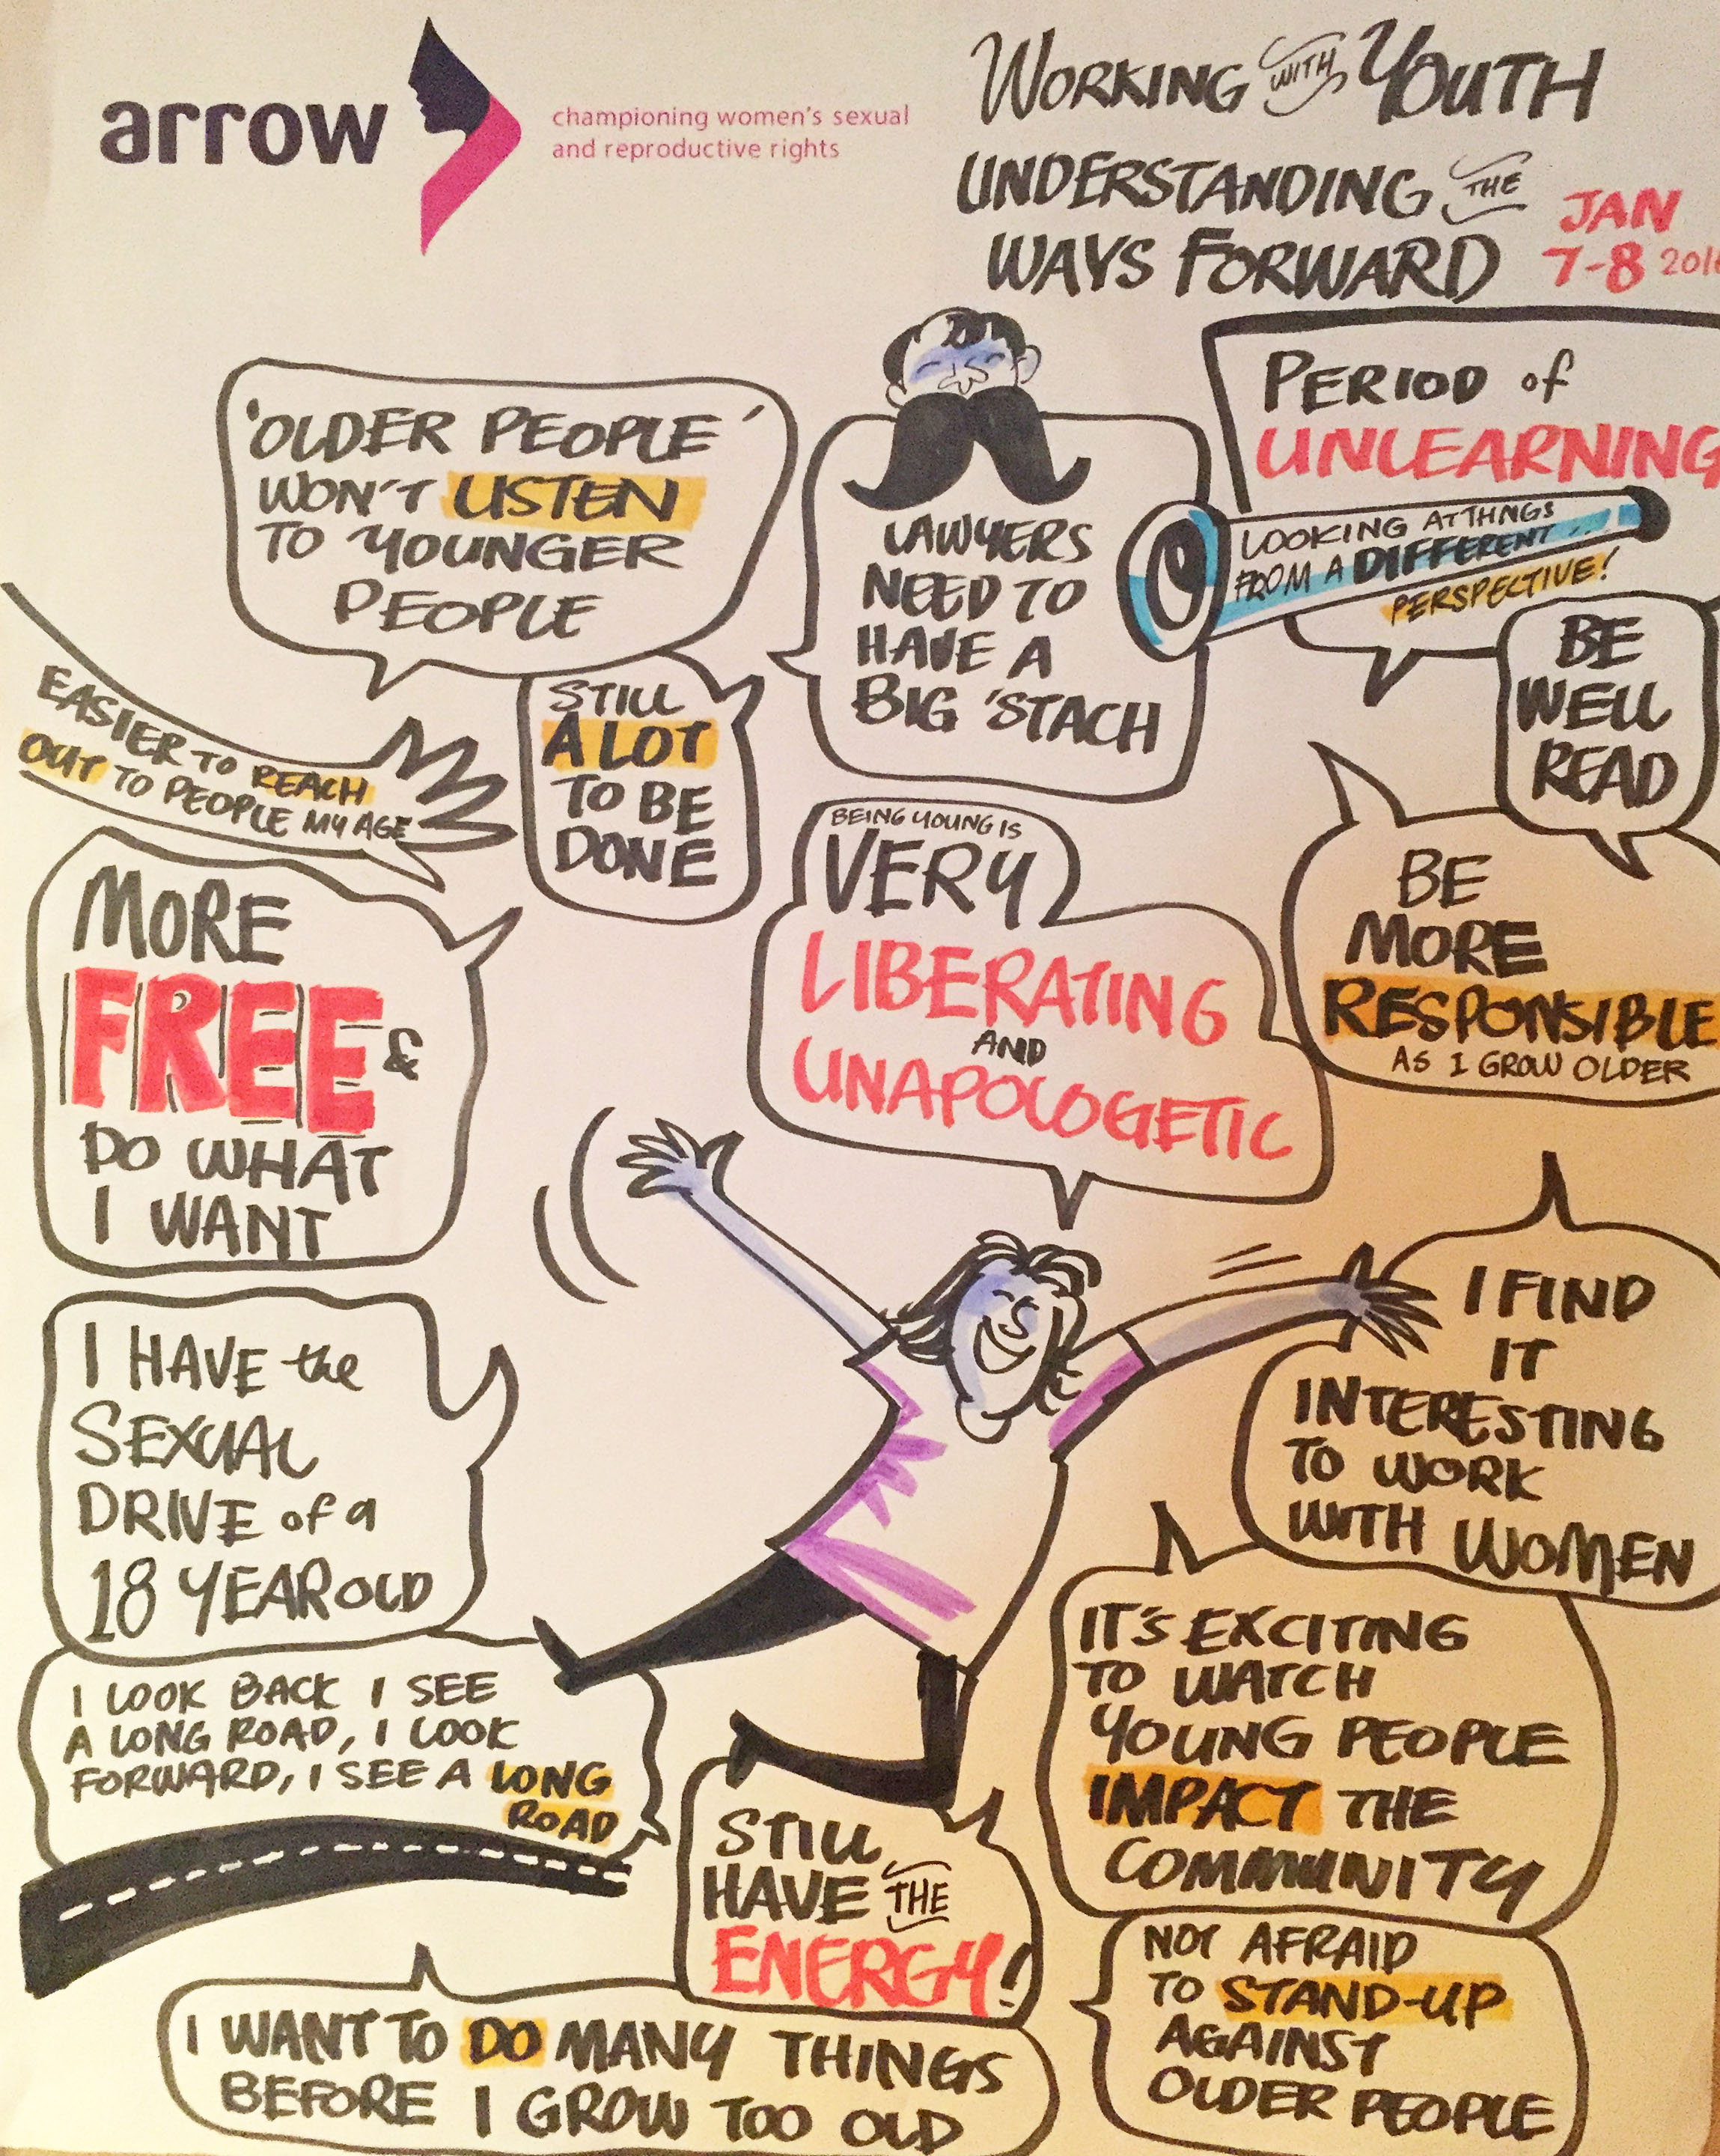 arrow
championing women's sexual
and reproductive rights
WORKING WITH YOUTH
UNDERSTANDING THE
WAYS FORWARD
JAN
7-8
'OLDER PEOPLE'
WON'T LISTEN
TO YOUNGER
PEOPLE
LAWYERS
NEED TO
HAVE A
BIG 'STACH
PERIOD of
UNLEARNING
LOOKING AT THNGS
FROM A DIFFERENT
PERSPECTIVE!
BE
WELL
READ
EASIER TO REACH
OUT TO PEOPLE MY AGE
STILL
A LOT
TO BE
DONE
BEING YOUNG IS
VERY
LIBERATING
AND
UNAPOLOGETIC
BE
MORE
RESPONSIBLE
AS I GROW OLDER
MORE
FREE &
DO WHAT
I WANT
I HAVE the
SEXUAL
DRIVE of a
18 YEAR OLD
I FIND
IT
INTERESTING
TO WORK
WITH WOMEN
I LOOK BACK I SEE
A LONG ROAD, I LOOK
FORWARD, I SEE A LONG
ROAD
IT'S EXCITING
TO WATCH
YOUNG PEOPLE
IMPACT THE
COMMUNITY
STILL
HAVE THE
ENERGY!
NOT AFRAID
TO STAND-UP
AGAINST
OLDER PEOPLE
I WANT TO DO MANY THINGS
BEFORE I GROW TOO OLD